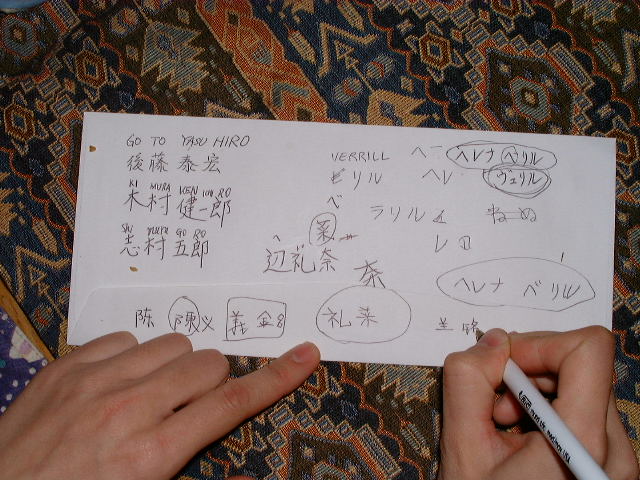 GO TO YASU HIRO
後藤 泰宏
KI MURA KEN ICHI RO
木村 健一郎
SHI MURA GO RO
志村 五郎
VERRILL
ビリル
ベ
ヘー
ヘレナ ベリル
ヘレ
ヴェリル
ラリル
レロ
ねーぬ
菜
ヘ
辺礼奈
奈
ヘレナ ベリル
陈
陳
义
義
礼菜